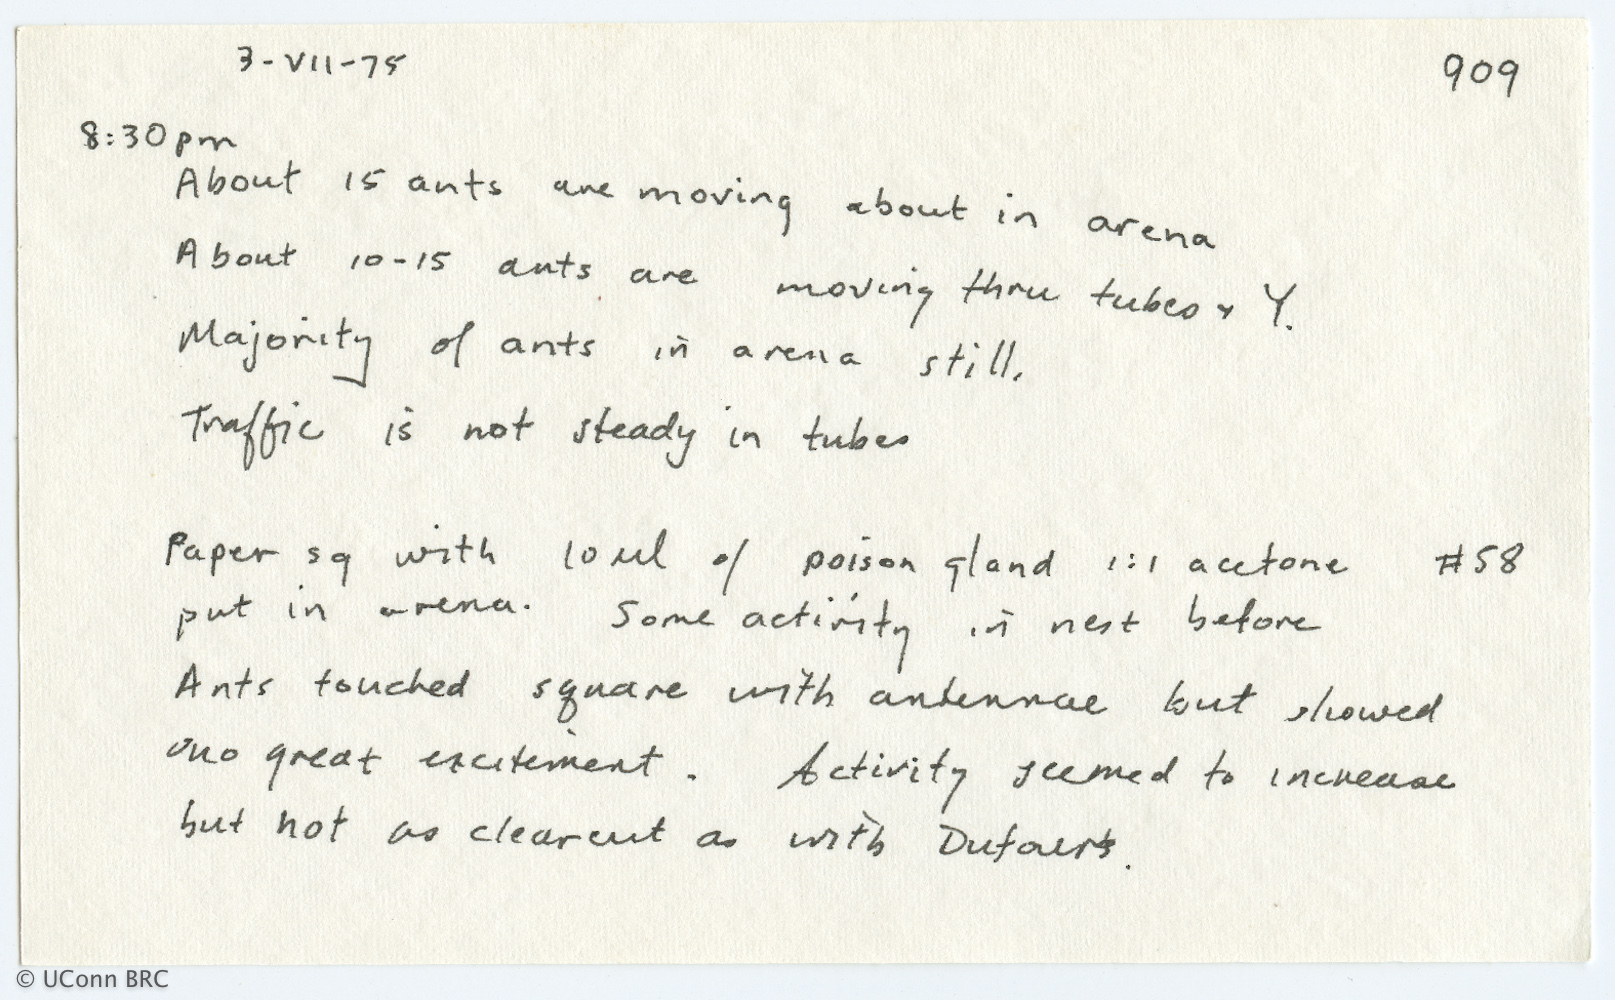 3-VII-75
909
8:30pm
About 15 ants are moving about in arena
About 10-15 ants are moving thru tubes + Y.
Majority of ants in arena still.
Traffic is not steady in tubes
Paper sq with 10 ul of poison gland 1:1 acetone #58
put in arena. Some activity in nest before
Ants touched square with antennae but showed
no great excitement. Activity seemed to increase
but not as clearcut as with Dufours.
© UConn BRC